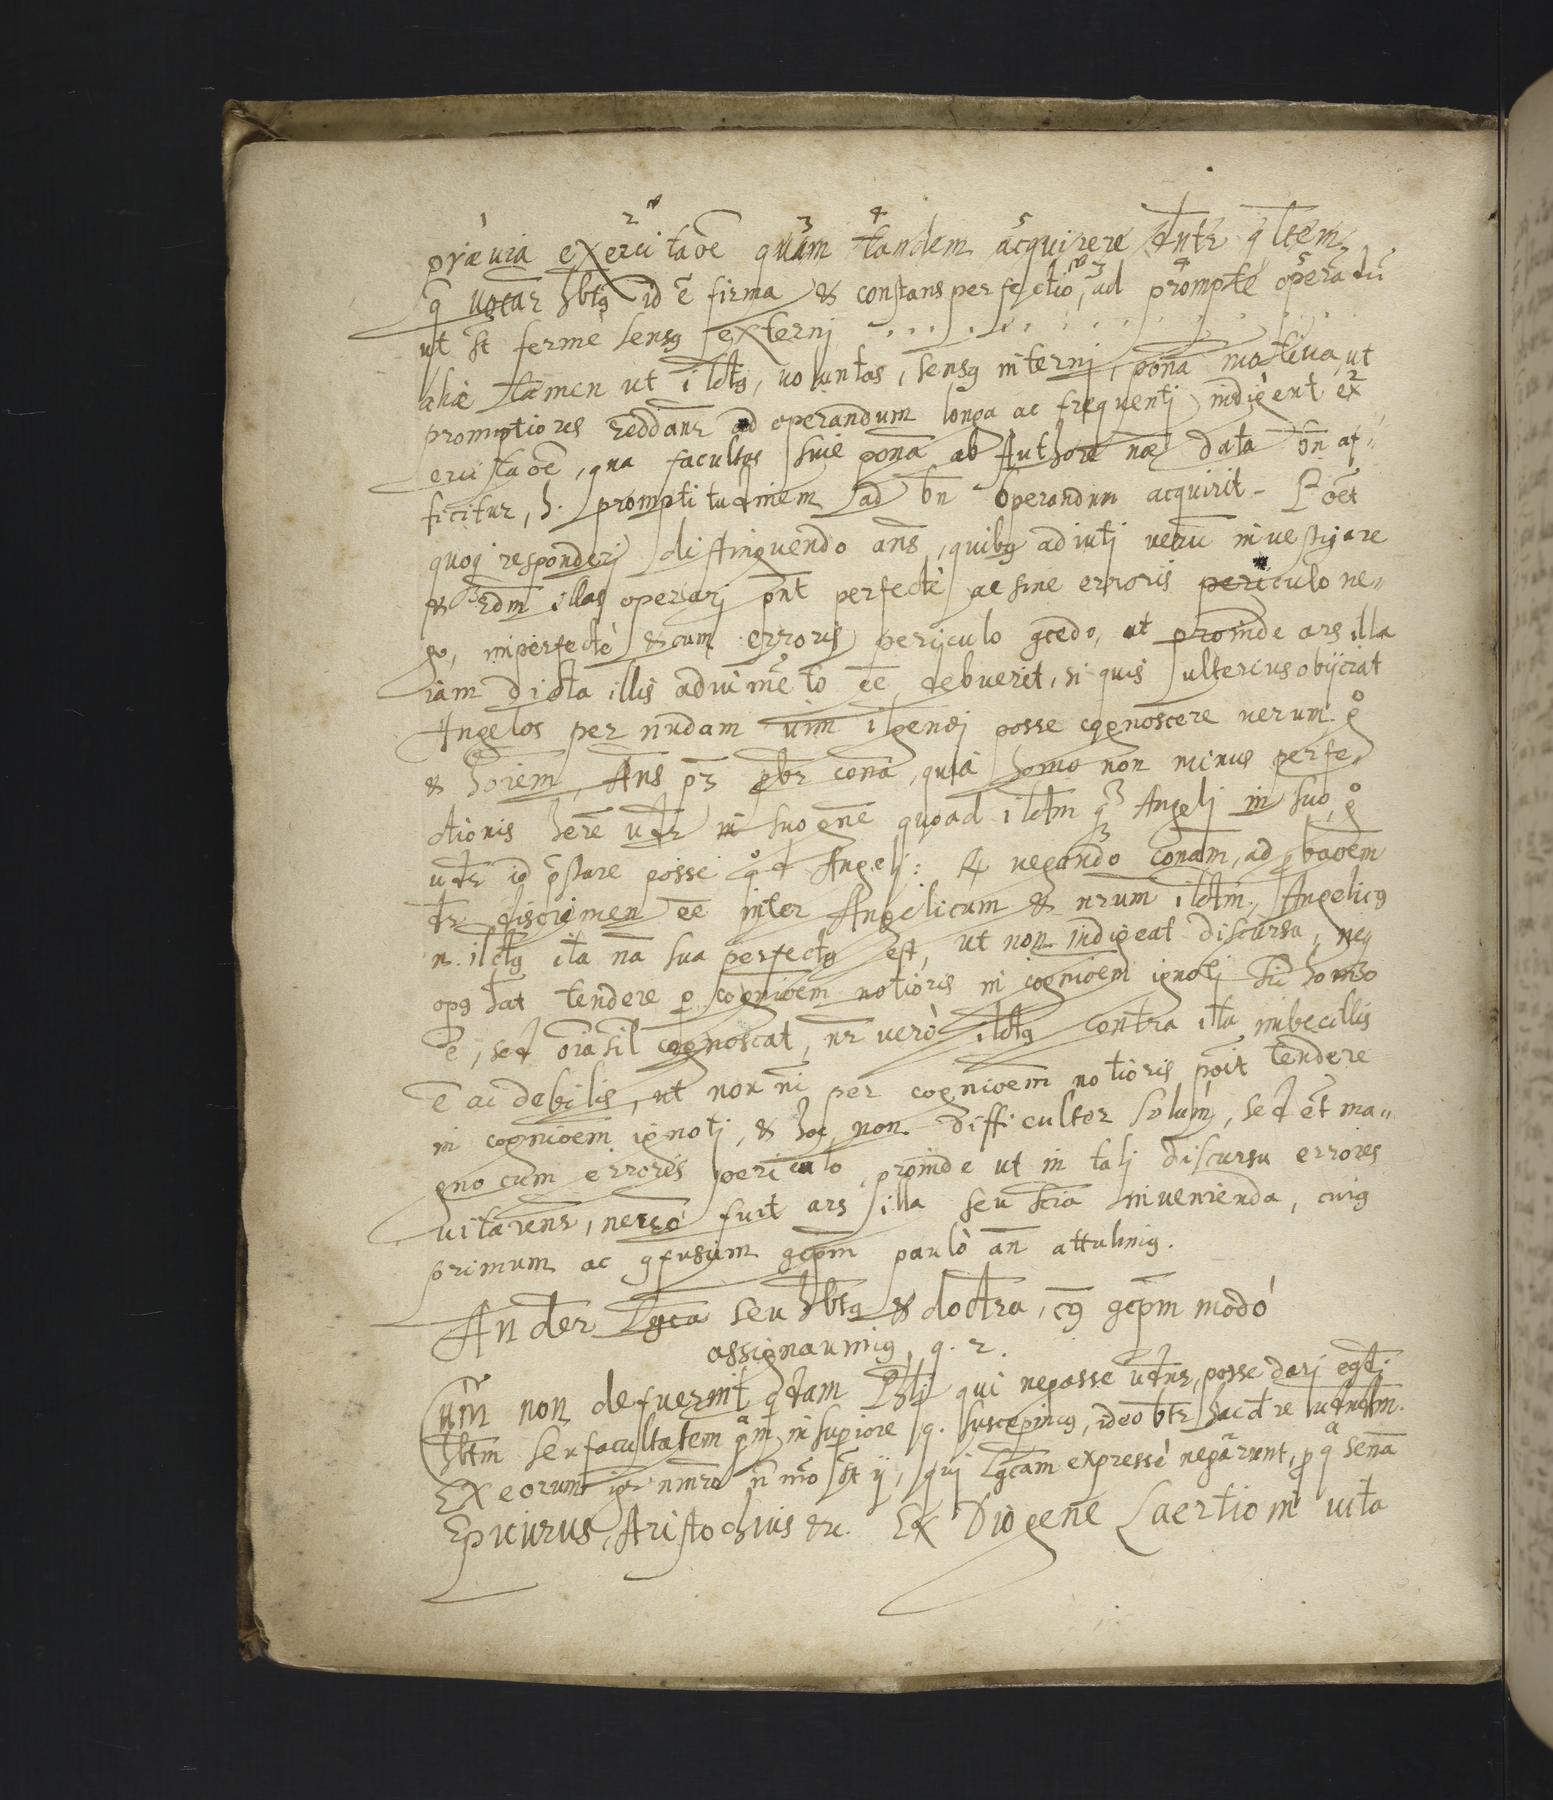 præuia exercitaoẽ quàm tandem acquirere dntr qltem
q̃ uotar hbtꝯ id ẽ firma & constans perfectio, ad promptè operadũ
ut st fermè sensꝯ externj . . . . . . . . .
aliæ tamen ut ĩlctꝯ, uoluntas, sensꝯ internj, pona motiua, ut
promptiores reddanr ad operandum longa ac frequentj indigent ex
ercitaoẽ, qua facultas siue pona ab Authore næ data bn af-
ficitur, h. promptitudinem ad bn operandum acquirit- Poẽt
quoq responderj distinguendo ans, quibꝯ adiutj uerũ inuestigare
& illas operarj pnt perfectè ac sine erroris periculo ne-
go, imperfectè & cum erroris periculo ꝯcedo, ut proinde ars illa
iam dicta illis adiumẽto eẽ debuerit, si quis ulterius obijciat
Angelos per nudam uim ilgendj posse cognoscere uerum, gͦ
& hoiem, Ans pz pbr cona, quia homo non minus perfe-
ctionis here udr in suo gne quoad ilctm q̃ Angelj in suo, gͦ
udr id p̃stare posse qd Angelj: R negando conam, ad pbaoem
dr discrimen eẽ inter Angelicum & nrum ilctm, Angelicꝯ
n. ilctꝯ ita na sua perfectꝯ est, ut non indigeat discursu, neqꝫ
opꝯ hat tendere p cognioem notioris in cognioem ignotj sic homo
ẽ, sed oia sil cognoscat, nr uerò ilctꝯ contra ita imbecillis
ẽ ac debilis, ut non ni per cognioem notioris poit tendere
in cognioem ignotj, & hoc non difficulter solùm, sed ẽt ma-
gno cum erroris periculo, proinde ut in talj discursu errores
uitarenr, necꝫo fuit ars illa seu scia inuenienda, cuiꝯ
primum ac ꝯfusum ꝯcpm paulò an attulimꝯ.
An der Lgca seu hbtꝯ & doctra, cꝯ ꝯcpm modò
assignauimꝯ, q. 2.
Cùm non defuerint qdam Phlj qui negasse udnr, posse darj
hbtm seu facultatem qm in supiore q. suscepimꝯ, ideò br hac de re
Ex eorum igr nmro in mo st ij, quj Lgcam expressè negarunt, p qa sena
Epicurus, Aristochius &c. Ex Diogene Laertio in uita